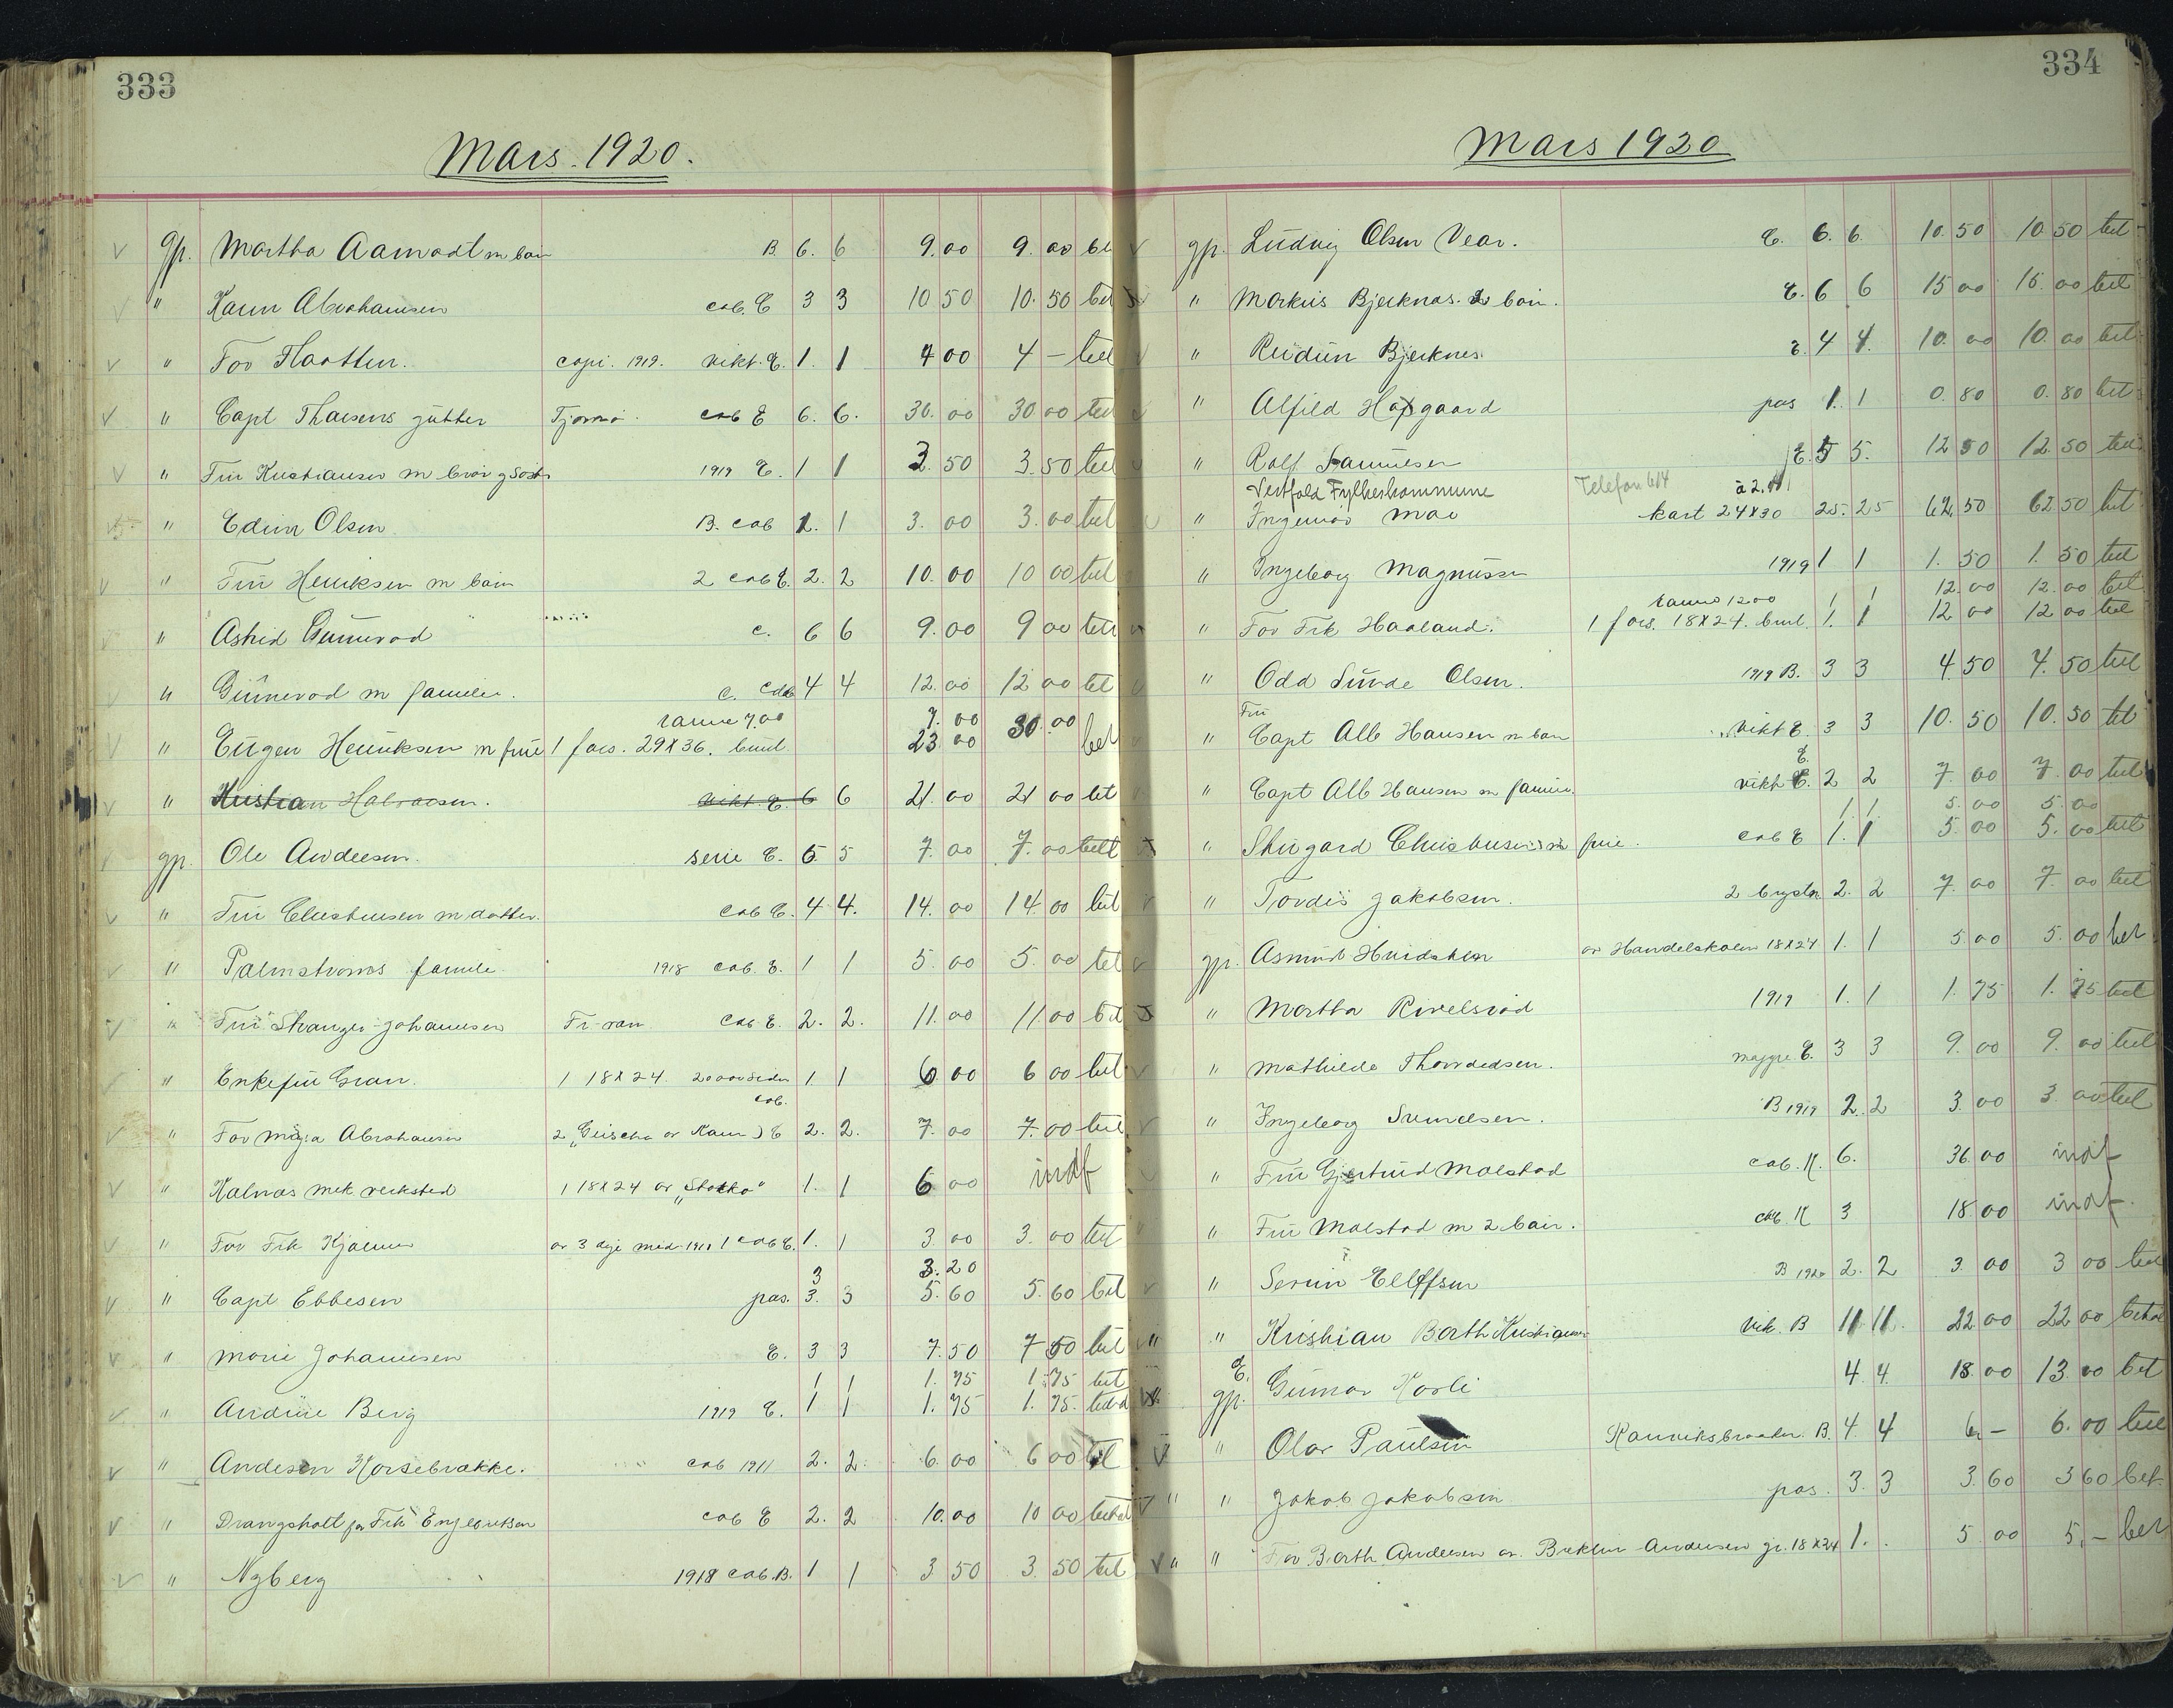 333
Mars. 1920.
gp. Martha Aamodt m barn B. 6. 6 9.00 9.00 bet
" Karin Abrahamsen cab. E 3 3 10 50 10.50 bet
" For Flaatten. copi. 1919. vikt. E. 1. 1 4 00 4 — bet
" Capt Thaisens gutter Tjømø. cab E 6. 6. 30.00 30 00 bet
" Fru Kristiansen m bror g Søst 1919 E. 1 1 3.50 3.50 bet
" Edin Olsen B. cab 1. 1 3.00 3.00 bet
" Fru Henriksen m barn 2 cab E. 2. 2 10.00 10 00 bet
" Astrid Gunnerød c. 6 6 9.00 9 00 bet
" Gunnerød m familie. c. cab 4 4 12.00 12 00 bet
ramme 7.00 7.00
" Eugen Henriksen m frue 1 fors. 29X36. 23 00 30.00 bet
" Kristian Halvorsen. vikt. E. 6 6 21.00 21 00 bet
gp. Ole Andersen. serie E. 5 5 7.00 7.00 bett
" Fru Christensen m datter. cab E. 4 4. 14.00 14.00 bet
" Palmstrøms familie. 1918 cab. E. 1 1 5.00 5.00 bet
" Fru Stranger Johannesen cab. E. 2. 2. 11.00 11.00 bet
" Enkefru Gran. 1 18X24 1. 1 6 00 6 00 bet
cab.
" For Maja Abrahamsen 2 "Geischa av Karin" E 2. 2. 7.00 7.00 bet
" Kalnæs mek verksted 1 18X24 av "Stokka" 1. 1 6 00 indf
" For Frk Kjølner av 3 dje mai 1911 1 cab E. 1. 1 3.00 3.00 bet
3 3.20
" Capt Ebbesen pas. 3. 3 5.60 5.60 bet
" Marie Johannesen E. 3 3 7.50 7 50 bet
1 1 1.75 1.75 bet
" Andrine Berg 1919 E. 1 1 1.75 1.75
" Andersen Horsebrække. cab 1911 2. 2. 6.00 6 00 bet
" Drangsholt for Frk Engebretsen cab E 2. 2 10.00 10 00 betalt
" Nyberg 1918 cab. B. 1 1 3 50 3.50 bet
334
Mars 1920
gp. Ludvig Olsen Vear. E. 6. 6. 10.50 10 50 bet
" Markus Bjerknæs. 2 barn. E. 6 6 15 00 15.00 bet
" Reidun Bjerknes. E. 4 4. 10.00 10.00 bet
" Alfild Hafgaard pas 1. 1 0.80 0.80 bet
" Rolf Samuelsen E. 5 5. 12 50 12.50 bet
Vestfold Fylkeskommune Telefon 614 à 2.50
" Ingeniør Moe kart 24X30 25. 25 62.50 62 50 bet
" Ingeborg Magnussen 1919 1 1 1.50 1.50 bet
ramme 12 00 1 1 12.00 12.00 bet
" For Frk Haaland. 1 fors. 18X24. 1. 1 12 00 12 00 bet
" Odd Sunde Olsen. 1919 B. 3 3 4.50 4.50 bet
Fru
" Capt Alb Hansen m barn vikt E. 3 3 10.50 10.50 bet
E.
" Capt Alb Hansen m familie. vikt E. 2 2 7.00 7.00 bet
1 1 5.00 5.00
" Skugard Christensen m frue. cab E 1. 1 5.00 5.00 bet
" Tordis Jakobsen. 2 brystb. 2. 2 7.00 7.00 bet
gp. Asmund Hvidsten av Handelskolen 18X24 1. 1 5.00 5.00 bet.
" Martha Rivelsrød 1919 1. 1 1.75 1.75 bet
" Mathilde Thorvaldsen. E. 3 3 9.00 9.00 bet
" Ingeborg Svendsen. B 1919 2. 2 3.00 3.00 bet
" Fru Gjertrud Mælstad cab. K. 6. 36.00 indf
" Fru Mælstad m 2 barn. cab. K 3 18.00 indf.
" Serine Elleffsen B 1920 2. 2 3.00 3 00 bet
" Kristian Barth Kristiansen vik. B 11 11. 22.00 22.00 betal
gp. Gunnar Horli 4. 4. 18.00 13.00 bet
" Olav Paulsen Ranviksbraaten. B. 4. 4 6. — 6.00 bet
" Jakob Jakobsen pas. 3. 3 3.60 3 60 bet.
" For Barth Andersen av. Andersen gr. 18X24 1. 5 00 5. — bet